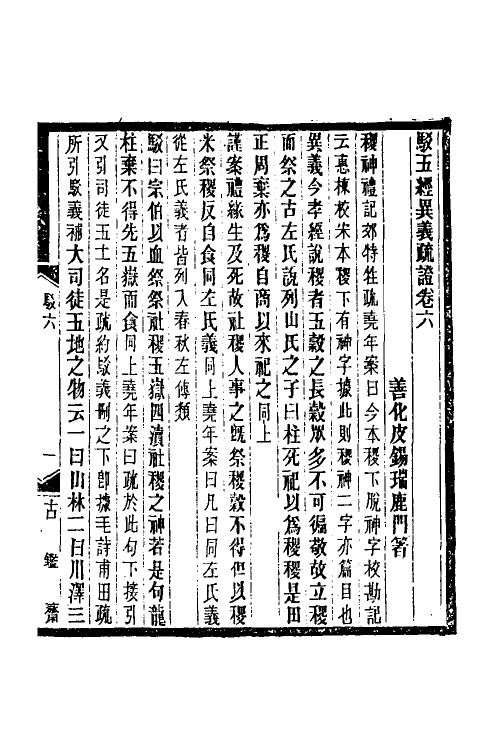 駁五經異義疏證卷六
善化皮錫瑞鹿門箸
稷神禮記郊特牲疏堯年案曰今本稷下脫神字校勘記
云惠棟校宋本稷下有神字據此則稷神二字亦篇目也
異義今孝經說稷者五穀之長穀眾多不可徧敬故立稷
而祭之古左氏說列山氏之子曰柱死祀以爲稷稷是田
正周棄亦爲稷自商以來祀之同上
謹案禮緣生及死故社稷人事之旣祭稷穀不得但以稷
米祭稷反自食同左氏義同上堯年案曰凡曰同左氏義
從左氏義者皆列入春秋左傳類
駁曰宗伯以血祭祭社稷五嶽四瀆社稷之神若是句龍
柱棄不得先五嶽而食同上堯年案曰疏於此句下接引
又引司徒五土名是疏約駁義刪之下卽據毛詩甫田疏
所引駁義補大司徒五地之物云一曰山林二曰川澤三
駁六
一
古鑑齋